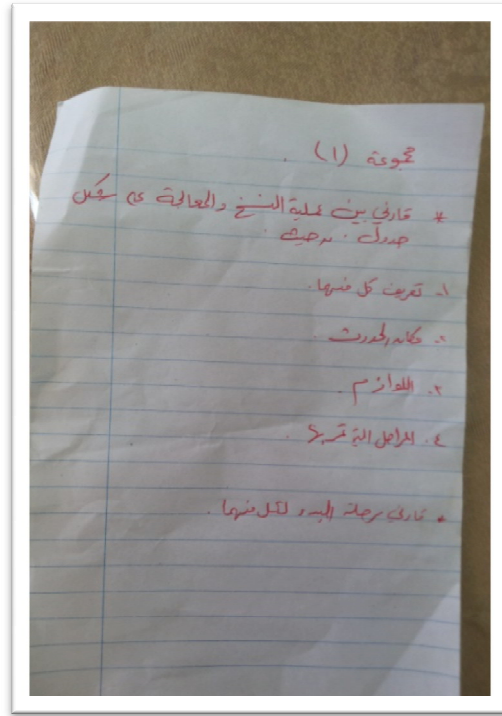 مجموعة (١) .
* قارني بين عملية النسخ والمعالجة على شكل
جدول . من حيث :
١- تعريف كل منهما.
٢. مكان الحدوث .
٣. اللوازم .
٤. المراحل التي تمر بها .
* قارني مرحلة البدء لكل منهما .